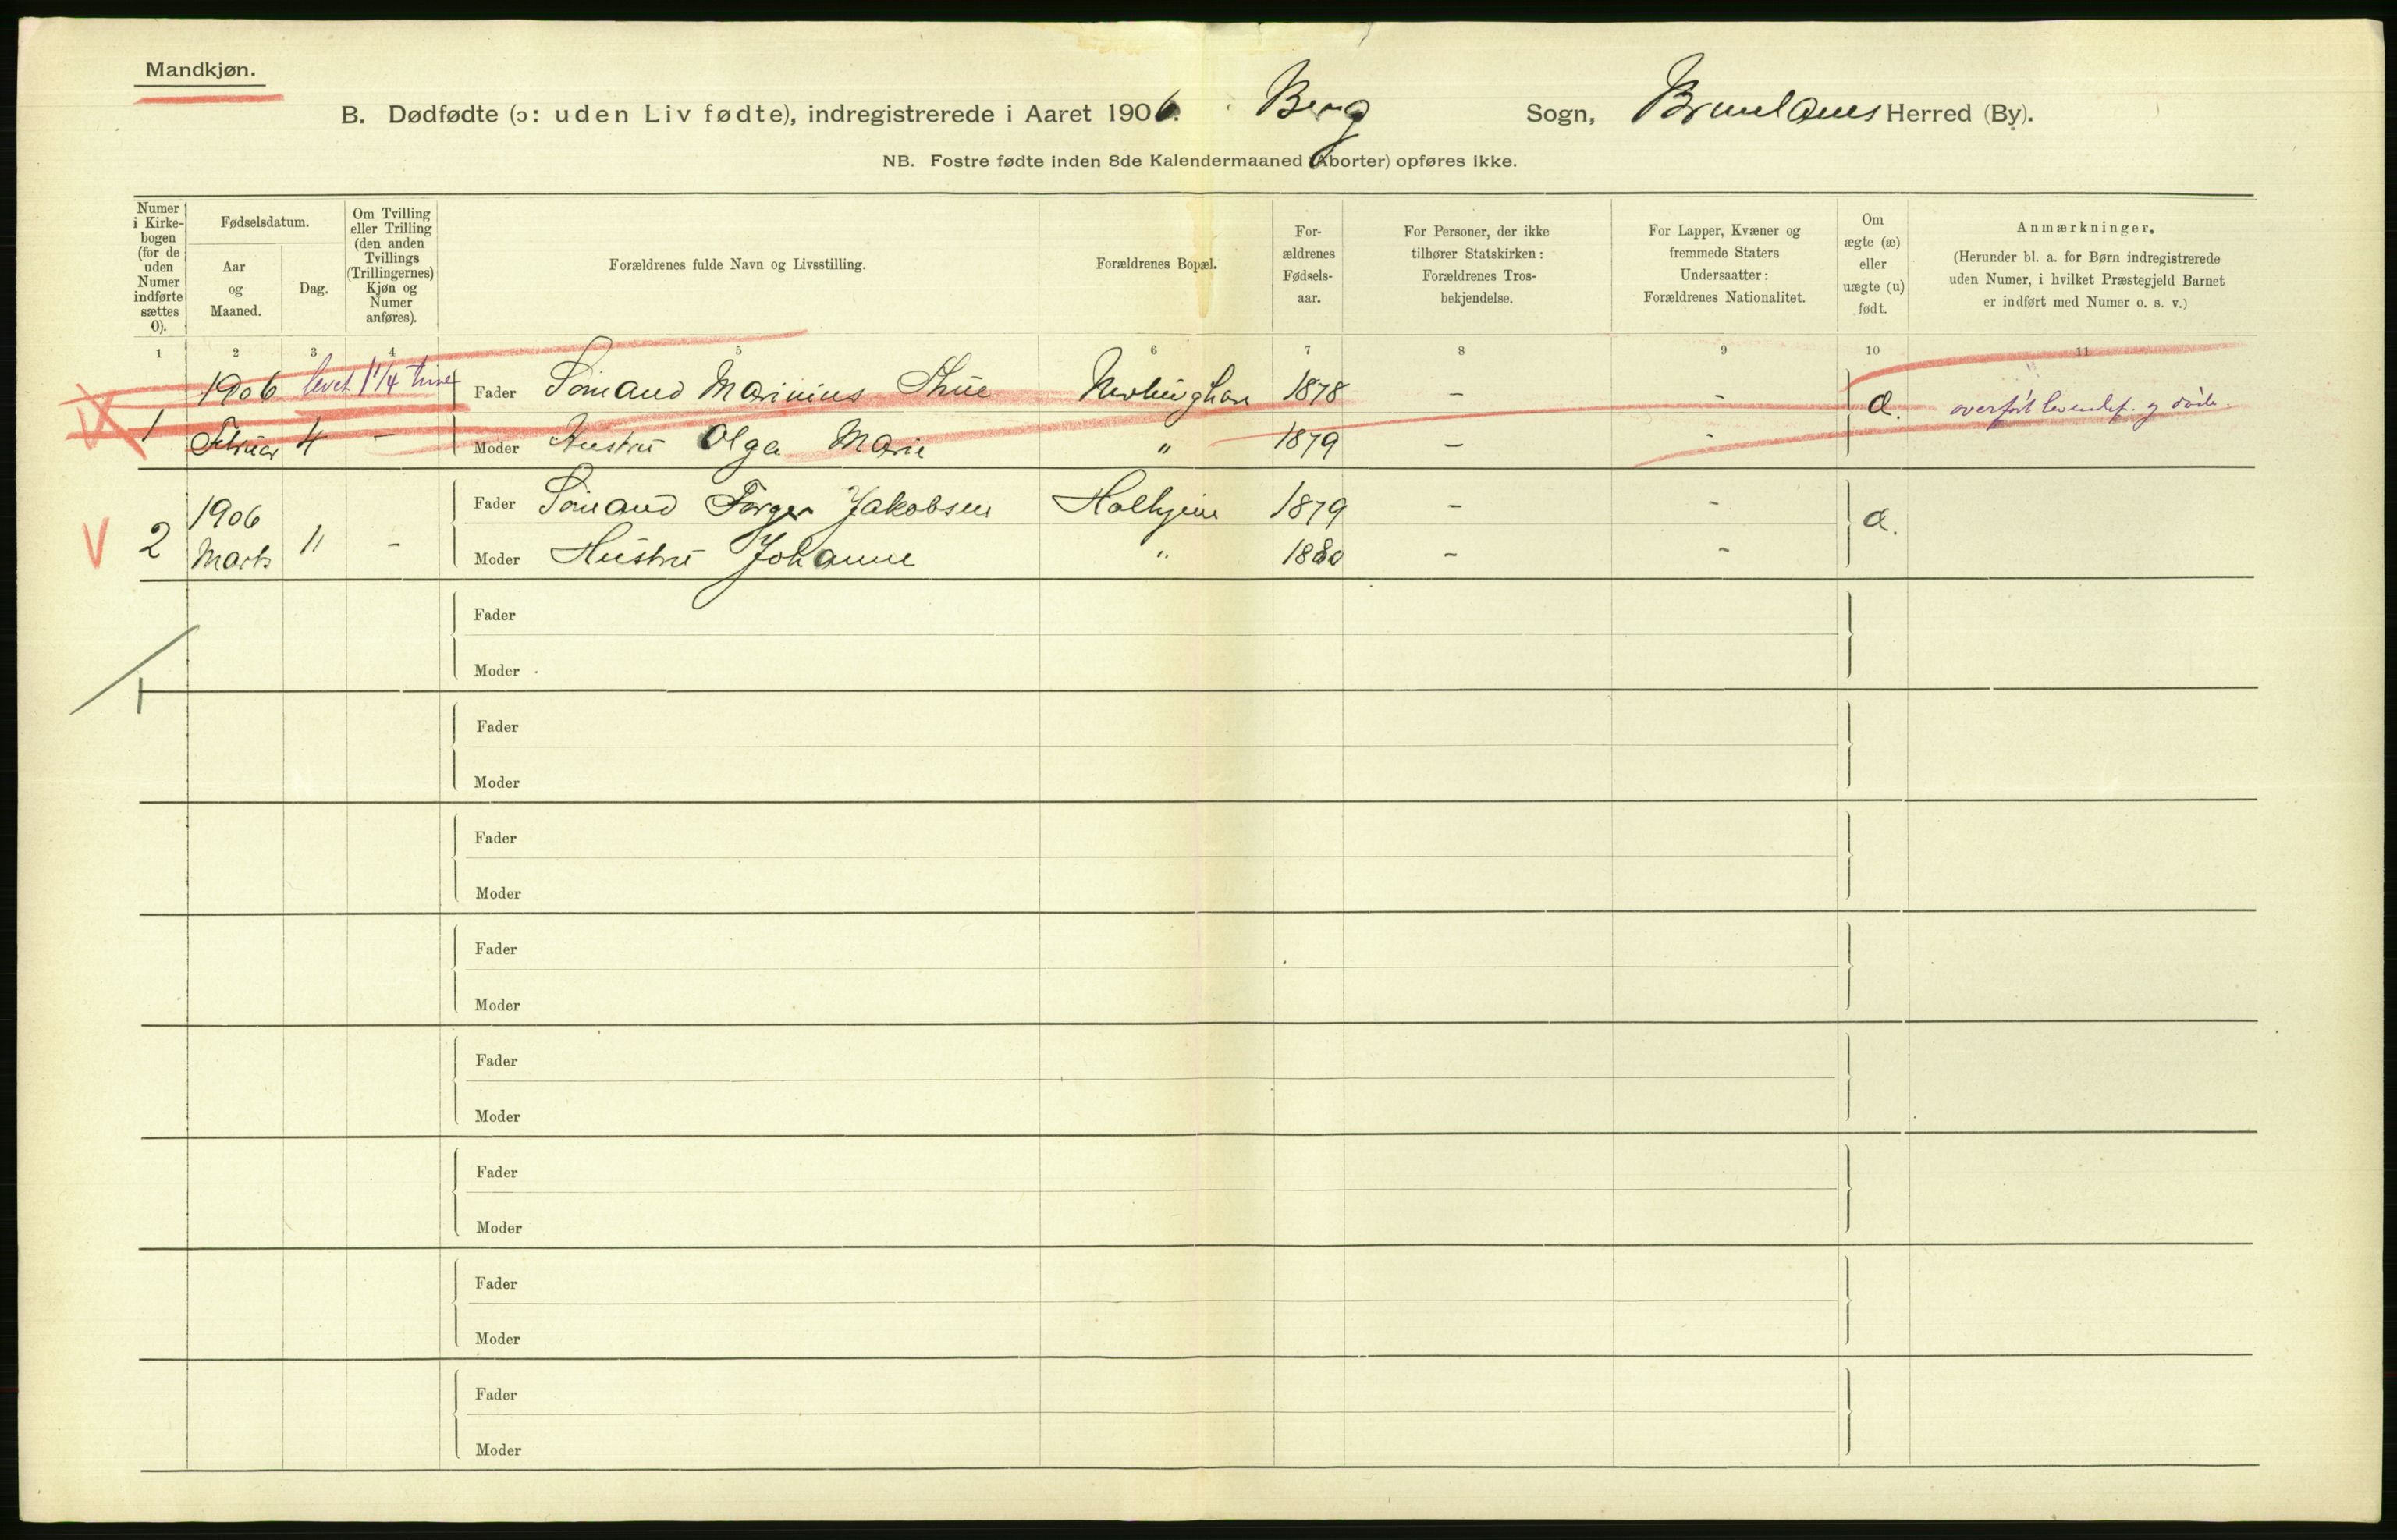 Mandkjøn.
B. Dødfødte (ɔ: uden Liv fødte), indregistrerede i Aaret 1906. Berg Sogn, Brunlanes Herred (By).
NB. Fostre fødte inden 8de Kalendermaaned (Aborter) opføres ikke.
Numer i Kirke-bogen (for de uden Numer indførte sættes 0).
Fødselsdatum.
Aar og Maaned.
Dag.
Om Tvilling eller Trilling (den anden Tvillings (Trillingernes) Kjøn og Numer anføres).
Forældrenes fulde Navn og Livsstilling.
Forældrenes Bopæl.
For-ældrenes Fødsels-aar.
For Personer, der ikke tilhører Statskirken: Forældrenes Tros-bekjendelse.
For Lapper, Kvæner og fremmede Staters Undersaatter: Forældrenes Nationalitet.
Om ægte (æ) eller uægte (u) født.
Anmærkninger.
(Herunder bl. a. for Børn indregistrerede uden Numer, i hvilket Præstegjeld Barnet er indført med Numer o. s. v.)
1 2 3 4 5 6 7 8 9 10 11
1906 levet 1 1/4 time Fader Sømand Marinius 1878 - -
1 Februar 4 - Moder Hustru Olga Marie " 1879 - - æ. overført levendef. og døde.
V 2 1906 Fader Sømand Torger Jakobsen 1879 - -
Marts 11 - Moder Hustru Johanne " 1880 - - æ.
Fader
Moder
1
Fader
Moder
Fader
Moder
Fader
Moder
Fader
Moder
Fader
Moder
Fader
Moder
Fader
Moder